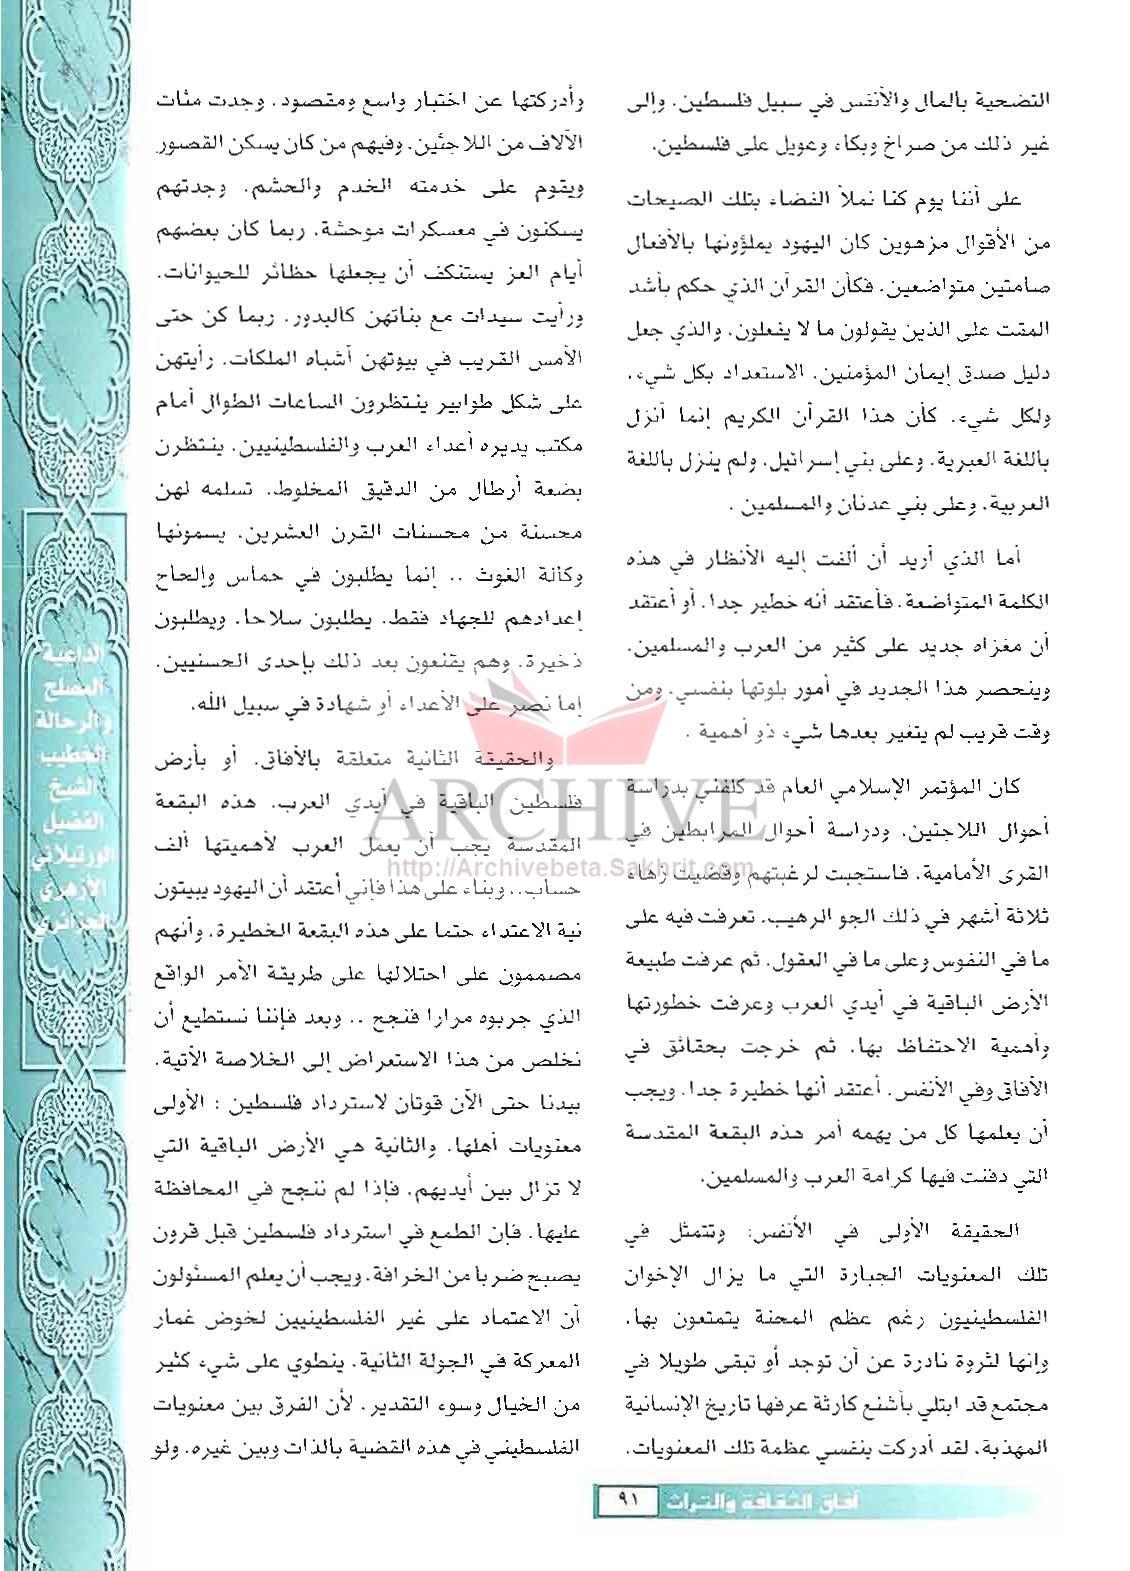 التضحية بالمال والأنفس في سبيل فلسطين. وإلى
غير ذلك من صراخ وبكاء وعويل على فلسطين.
على أننا يوم كنا نملأ الفضاء بتلك الصيحات
من الأقوال مزهوين كان اليهود يملؤونها بالأفعال
صامتين متواضعين. فكأن القرآن الذي حكم بأشد
المقت على الذين يقولون ما لا يفعلون. والذي جعل
دليل صدق إيمان المؤمنين. الاستعداد بكل شيء.
ولكل شيء. كأن هذا القرآن الكريم إنما أنزل
باللغة العبرية. وعلى بني إسرائيل. ولم ينزل باللغة
العربية. وعلى بني عدنان والمسلمين .
أما الذي أريد أن ألفت إليه الأنظار في هذه
الكلمة المتواضعة. فأعتقد أنه خطير جدا. أو أعتقد
أن مغزاه جديد على كثير من العرب والمسلمين.
وينحصر هذا الجديد في أمور بلوتها بنفسي. ومن
وقت قريب لم يتغير بعدها شيء ذو أهمية .
كان المؤتمر الإسلامي العام قد كلفني بدراسة
أحوال اللاجئين. ودراسة أحوال المرابطين في
القرى الأمامية. فاستجبت لرغبتهم وقضيت زهاء
ثلاثة أشهر في ذلك الجو الرهيب. تعرفت فيه على
ما في النفوس وعلى ما في العقول. ثم عرفت طبيعة
الأرض الباقية في أيدي العرب وعرفت خطورتها
وأهمية الاحتفاظ بها. ثم خرجت بحقائق في
الآفاق وفي الأنفس. أعتقد أنها خطيرة جدا. ويجب
أن يعلمها كل من يهمه أمر هذه البقعة المقدسة
التي دفنت فيها كرامة العرب والمسلمين.
الحقيقة الأولى في الأنفس: وتتمثل في
تلك المعنويات الجبارة التي ما يزال الإخوان
الفلسطينيون رغم عظم المحنة يتمتعون بها.
وإنها لثروة نادرة عن أن توجد أو تبقى طويلا في
مجتمع قد ابتلي بأشنع كارثة عرفها تاريخ الإنسانية
المهذبة. لقد أدركت بنفسي عظمة تلك المعنويات.
وأدركتها عن اختبار واسع ومقصود. وجدت مئات
الآلاف من اللاجئين. وفيهم من كان يسكن القصور
ويقوم على خدمته الخدم والحشم. وجدتهم
يسكنون في معسكرات موحشة. ربما كان بعضهم
أيام العز يستنكف أن يجعلها حظائر للحيوانات.
ورأيت سيدات مع بناتهن كالبدور. ربما كن حتى
الأمس القريب في بيوتهن أشباه الملكات. رأيتهن
على شكل طوابير ينتظرون الساعات الطوال أمام
مكتب يديره أعداء العرب والفلسطينيين. ينتظرن
بضعة أرطال من الدقيق المخلوط. تسلمه لهن
محسنة من محسنات القرن العشرين. يسمونها
وكالة الغوث .. إنما يطلبون في حماس وإلحاح
إعدادهم للجهاد فقط. يطلبون سلاحا. ويطلبون
ذخيرة. وهم يقنعون بعد ذلك بإحدى الحسنيين.
إما نصر على الأعداء أو شهادة في سبيل الله.
والحقيقة الثانية متعلقة بالآفاق. أو بأرض
فلسطين الباقية في أيدي العرب. هذه البقعة
المقدسة يجب أن يعمل العرب لأهميتها ألف
حساب.. وبناء على هذا فإني أعتقد أن اليهود يبيتون
نية الاعتداء حتما على هذه البقعة الخطيرة. وأنهم
مصممون على احتلالها على طريقة الأمر الواقع
الذي جربوه مرارا فنجح .. وبعد فإننا نستطيع أن
نخلص من هذا الاستعراض إلى الخلاصة الآتية.
بيدنا حتى الآن قوتان لاسترداد فلسطين : الأولى
معنويات أهلها. والثانية هي الأرض الباقية التي
لا تزال بين أيديهم. فإذا لم ننجح في المحافظة
عليها. فإن الطمع في استرداد فلسطين قبل قرون
يصبح ضربا من الخرافة. ويجب أن يعلم المسئولون
أن الاعتماد على غير الفلسطينيين لخوض غمار
المعركة في الجولة الثانية. ينطوي على شيء كثير
من الخيال وسوء التقدير. لأن الفرق بين معنويات
الفلسطيني في هذه القضية بالذات وبين غيره. ولو
الداعية
المصلح
والرحالة
الخطيب
الشيخ
الفضيل
الورتيلاني
الأزهري
الجزائري
ARCHIVE
http://Archivebeta.Sakhrit.com
آفاق الثقافة والتراث ٩١